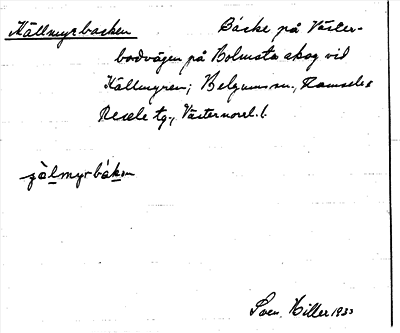 Källmyrbacken Backe på Väster-
bodvägen på Holmsta skog vid
Källmyren; Helgums sn., Ramsele &
Resele tg., Västernorrl. l.
Sven Hiller 1933